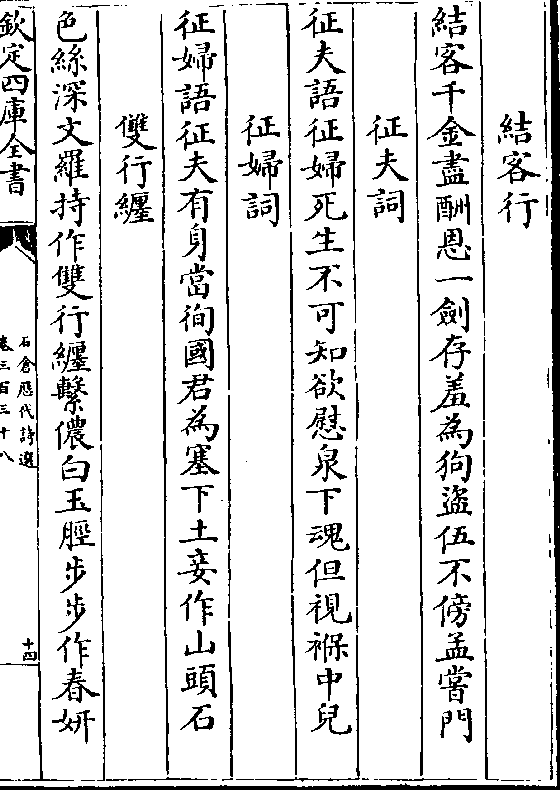 結客行
結客千金盡酬恩一劍存羞為狗盜伍不傍孟嘗門
征夫詞
征夫語征婦死生不可知欲慰泉下魂但視褓中兒
征婦詞
征婦語征夫有身當徇國君為塞下土妾作山頭石
雙行纏
色絲深文羅持作雙行纏繫儂白玉脛步步作春妍
欽定四庫全書
石倉歷代詩選
卷三百三十八
十四